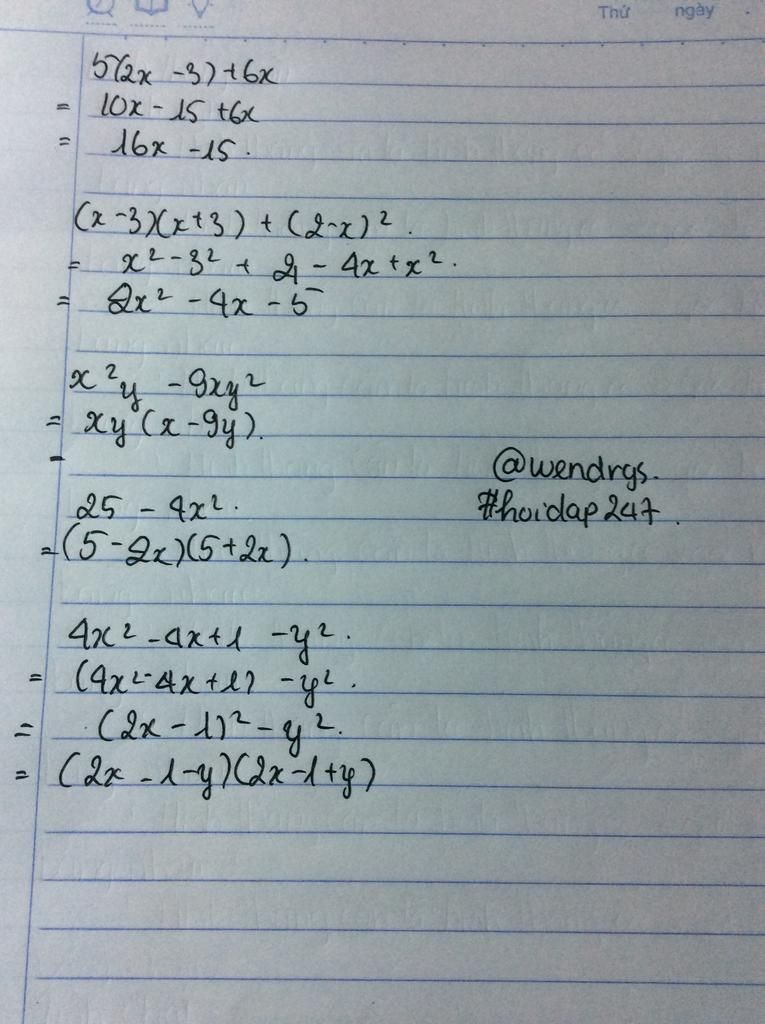 Thứ ngày
5(2x -3) +6x
= 10x - 15 +6x
= 16x -15.
(x -3)(x+3) + (2-x)².
= x² -3² + 4 - 4x + x².
= 2x² - 4x - 5
x²y - 9xy²
= xy (x - 9y).
=
25 - 4x².
=(5 -2x)(5+2x).
@wendrgs.
#hoidap247.
4x² -4x+1 -y².
= (4x²-4x+1) -y².
= (2x - 1)² - y².
= (2x - 1-y)(2x-1+y)